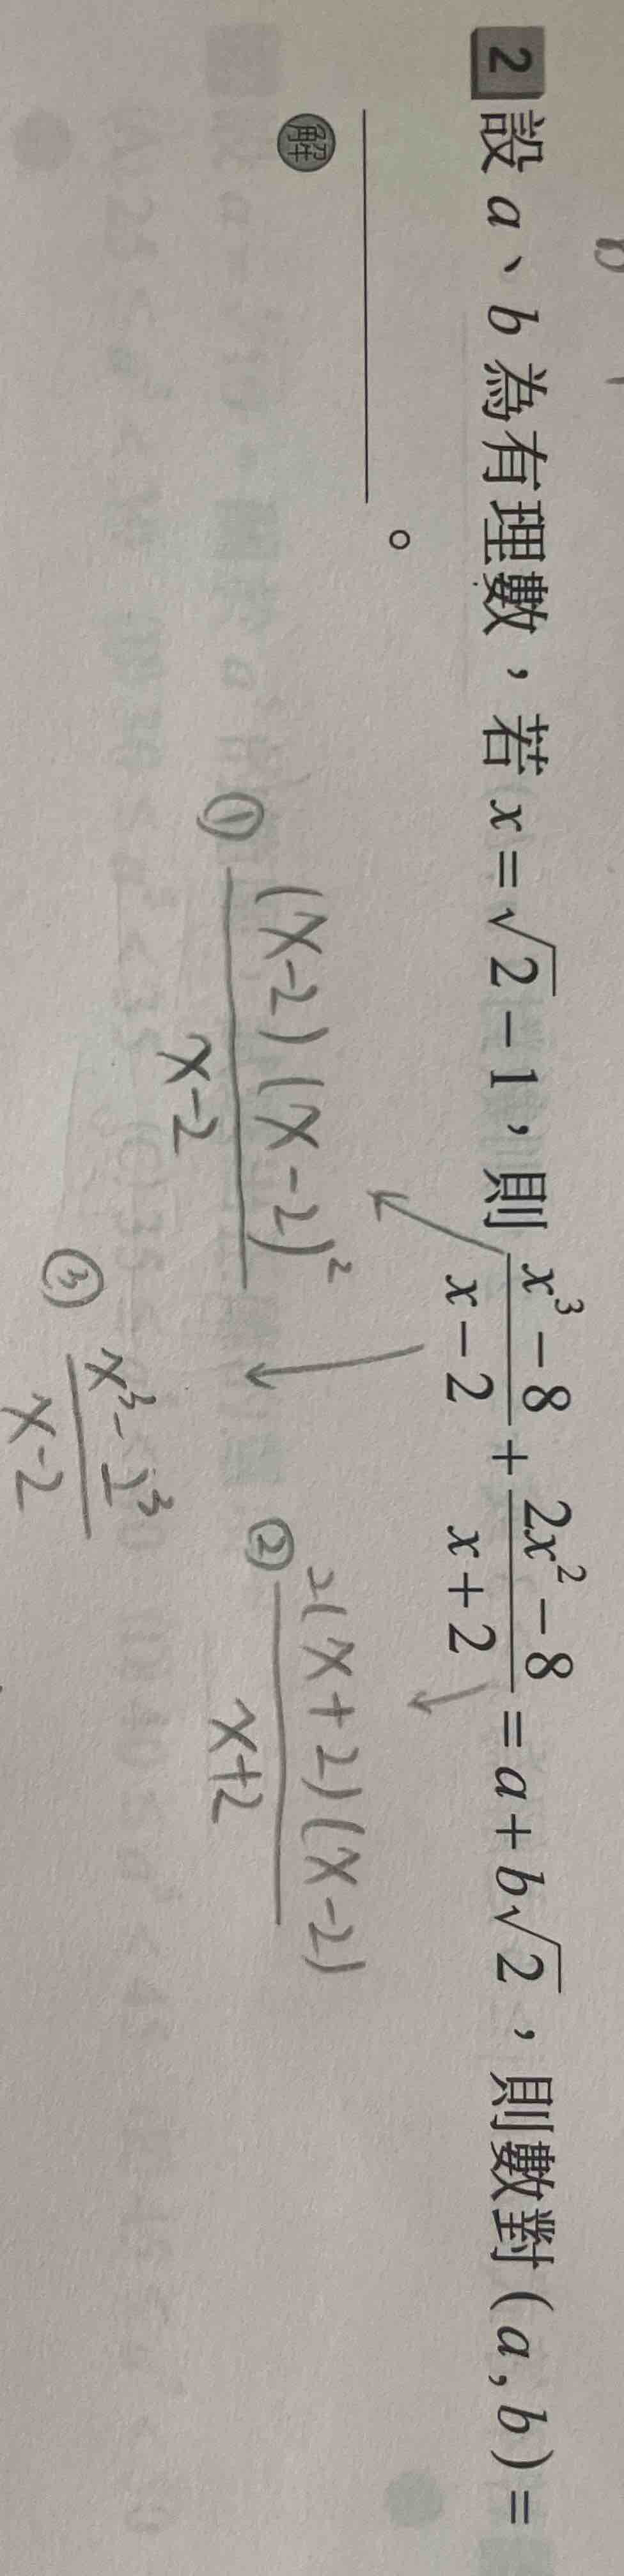 2 設 a、b 為有理數，若 x = √2 - 1，則 (x³ - 8)/(x - 2) + (2x² - 8)/(x + 2) = a + b√2，則數對 (a, b) =
____________。
解
① (x-2)(x-2)²/(x-2)
② 2(x+2)(x-2)/(x+2)
③ (x³-2³)/(x-2)